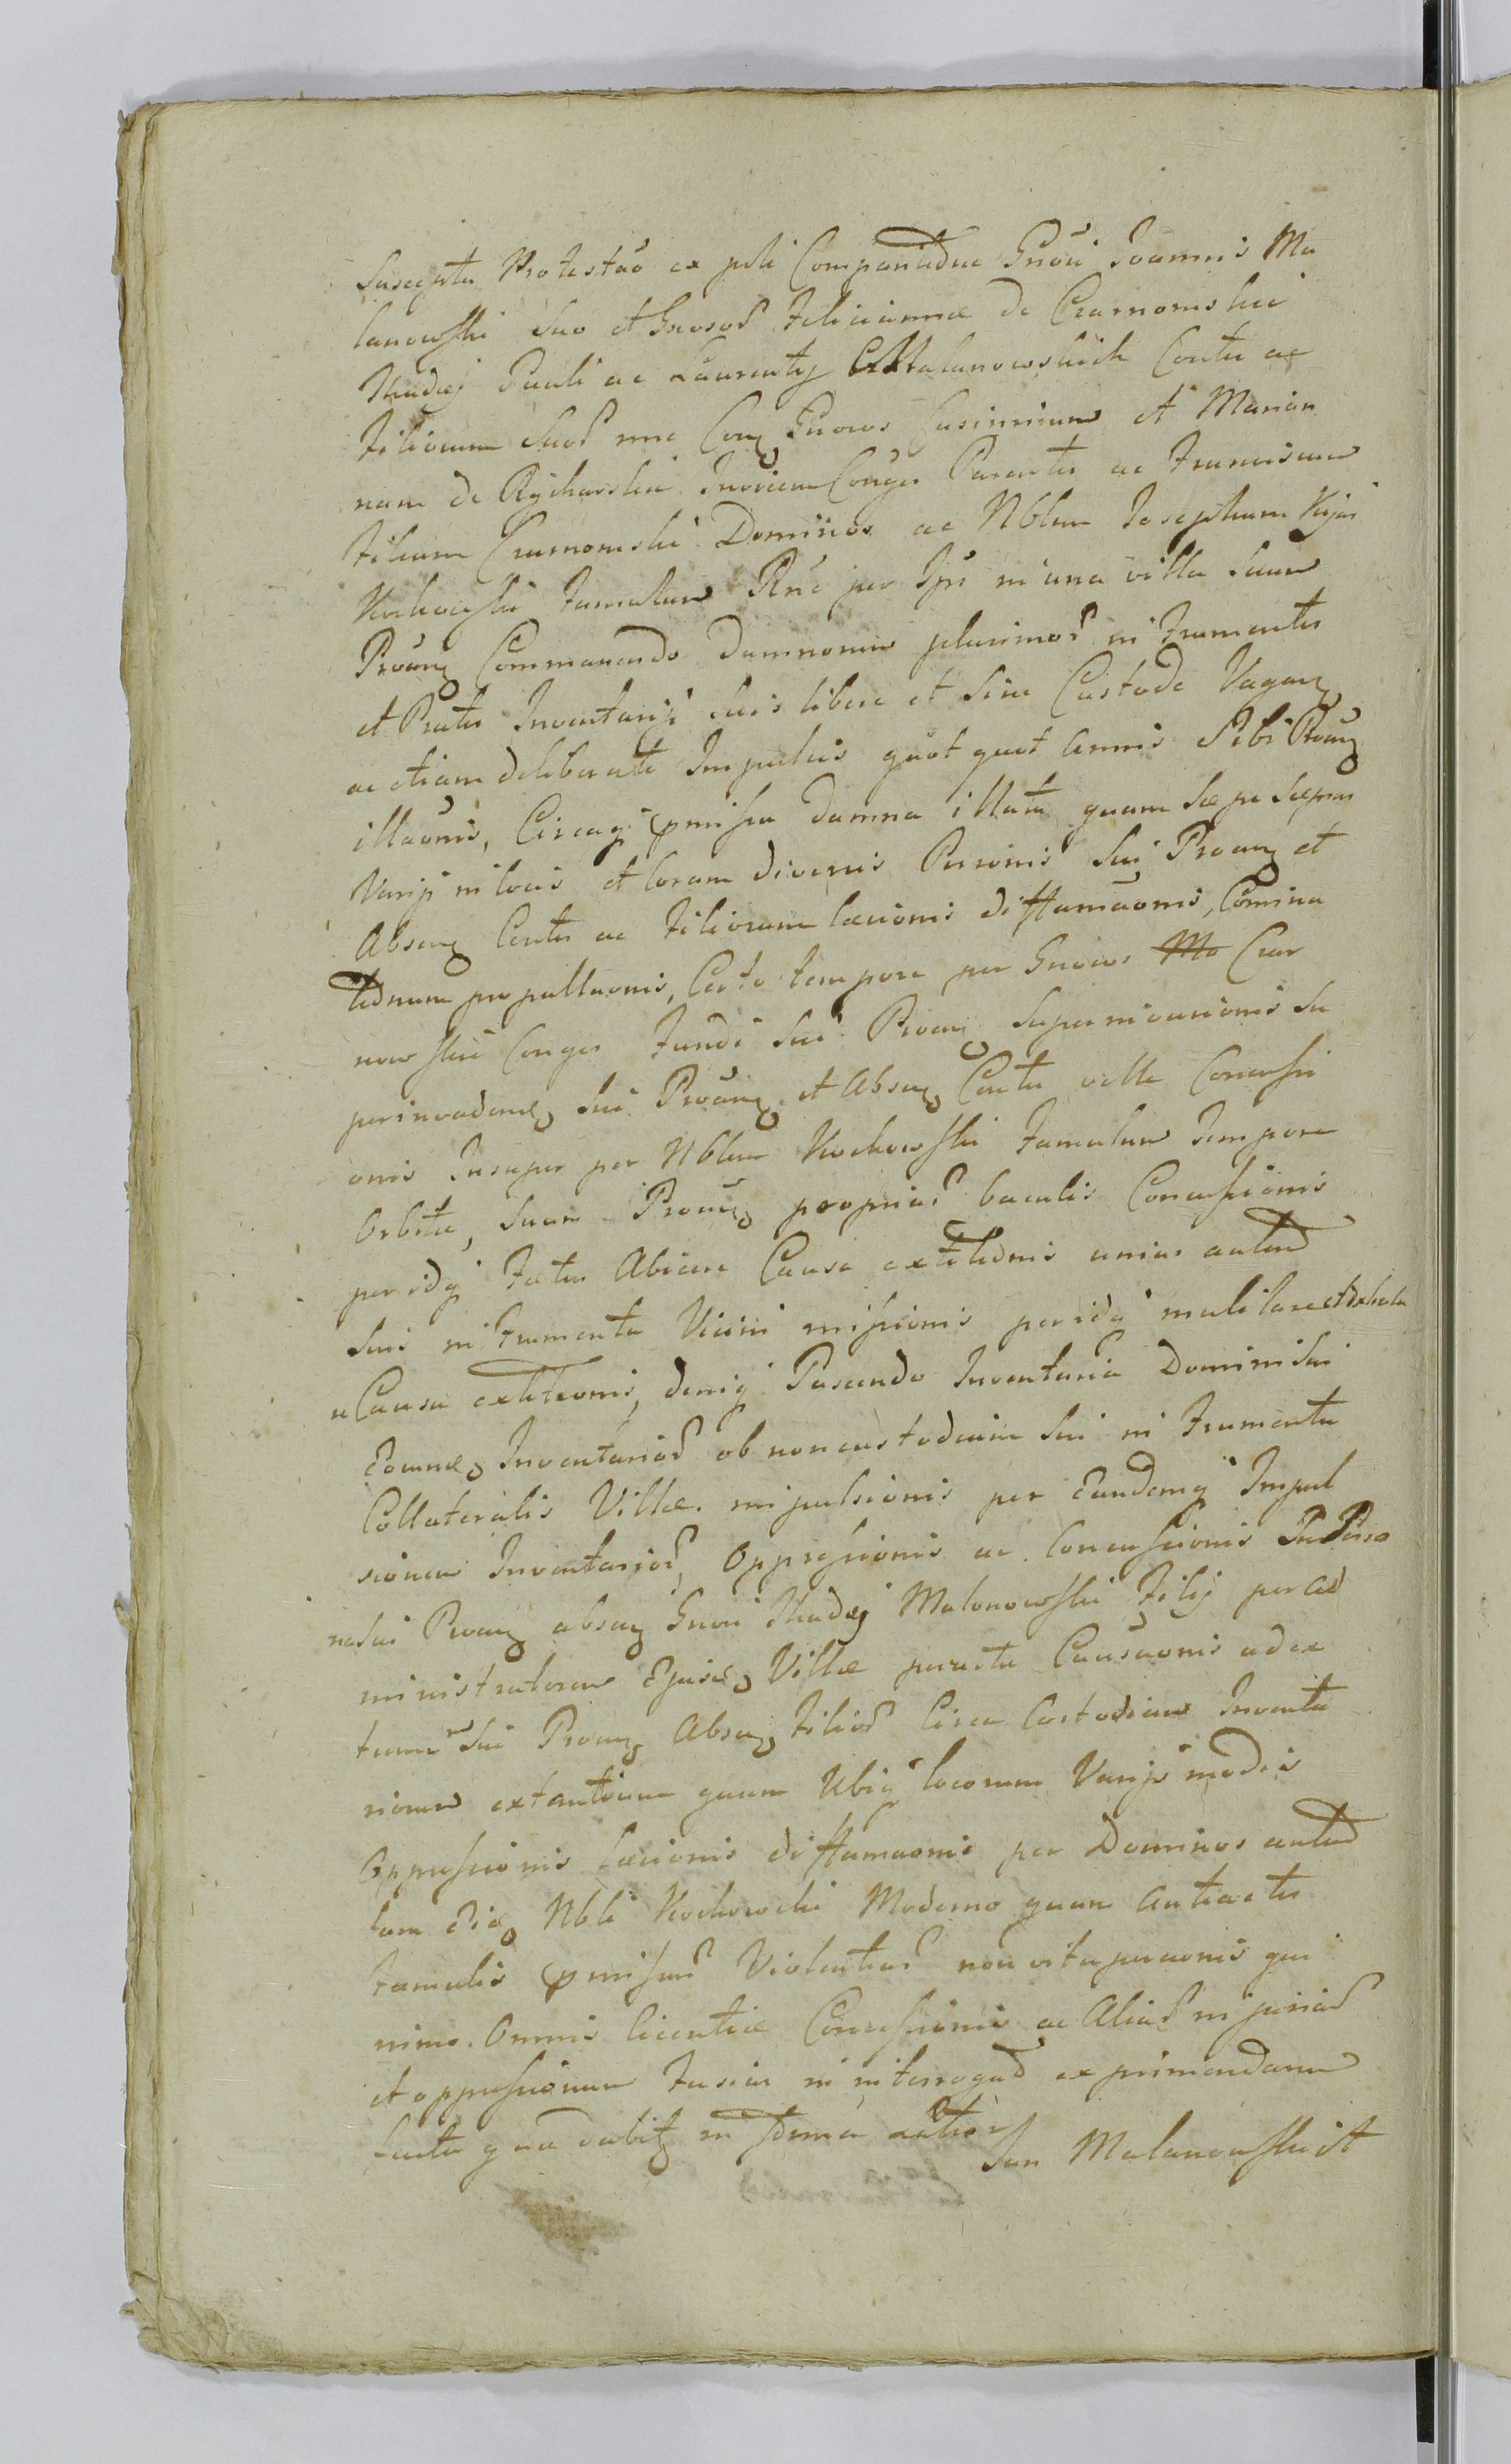 Suscepta Protestao ex psli Comparitione Gnosi Joannis Ma
lanowski suo et Gnosor Felicianna de Czarnomskie
Thadej Pauli ac Laurentij Malanowskich Contu ac
Filiorum suor nne Cong Gnosos Casimirum et Marian
nam de Rychawskie Invicem Conges Parentes ac Franciscum
Filium Czarnomski Dominos ac Nblem Josephum
Kochowski Famulum Rne per Ipsi in una villa suum
Proang Commanendo damnorum plurimor in Frumentis
et Pratis Inventarij suis libere et sine Custode Vagang
ac etiam deliberate Impulsis quot quot annis Sibi Proang
illaonis, Circaq pmissa damna illata quam sæpe sæpius
Varijs in locis et Coram diversis Personis Sui Proang et
Absenz Contis ac Filiorum læsionis diffamaonis, Comina
tionum propallaonis, Certo tempore per Gnosos Ma Czar
nowskie Conges Fundi Sui Proang Supernivasionis Su
perinvadend sui Proang et Absenz Contis velle Concussi
onis Insuper per Nblem Kochowski Famulum Tempore
Orbita, Suam Proang proprias baculis Concussionis
per idq Fætus Abicere Causa extitionis unius autem
Sui in Frumenta Vicini missionis per idq
a Causa extiteonis, deniq Pascendo Inventaria Domini Sui
Eorund Inventarior ob non custodiam Sui in Frumenta
Collateralis Villæ impulsionis per Eandemq Impul
sionem Inventarior, Oppressionis ac Concussionis In Perso
na sui Proang absenz Gnosi Thadej Malonowski Filij per Ad
ministratorem Ejusd Villæ peracta Causaonis adex
tremum Sui Proang Absenz Filior Circa Costodiam Inventa
riorum extantium quam Ubiq locorum Varijs modis
Oppressionis læsionis diffamaonis per Dominos autem
tam Eid Nbli Kochowski Moderno quam Antiactis
Famulis pmissar Violentiar non vituperaonis qui
nimo Omnis licentiæ Concessionis ac Aliar injuriar
et oppressionum Fusius in interrogad exprimendarum
facta q na dabitz in forma
Jan Malanowski